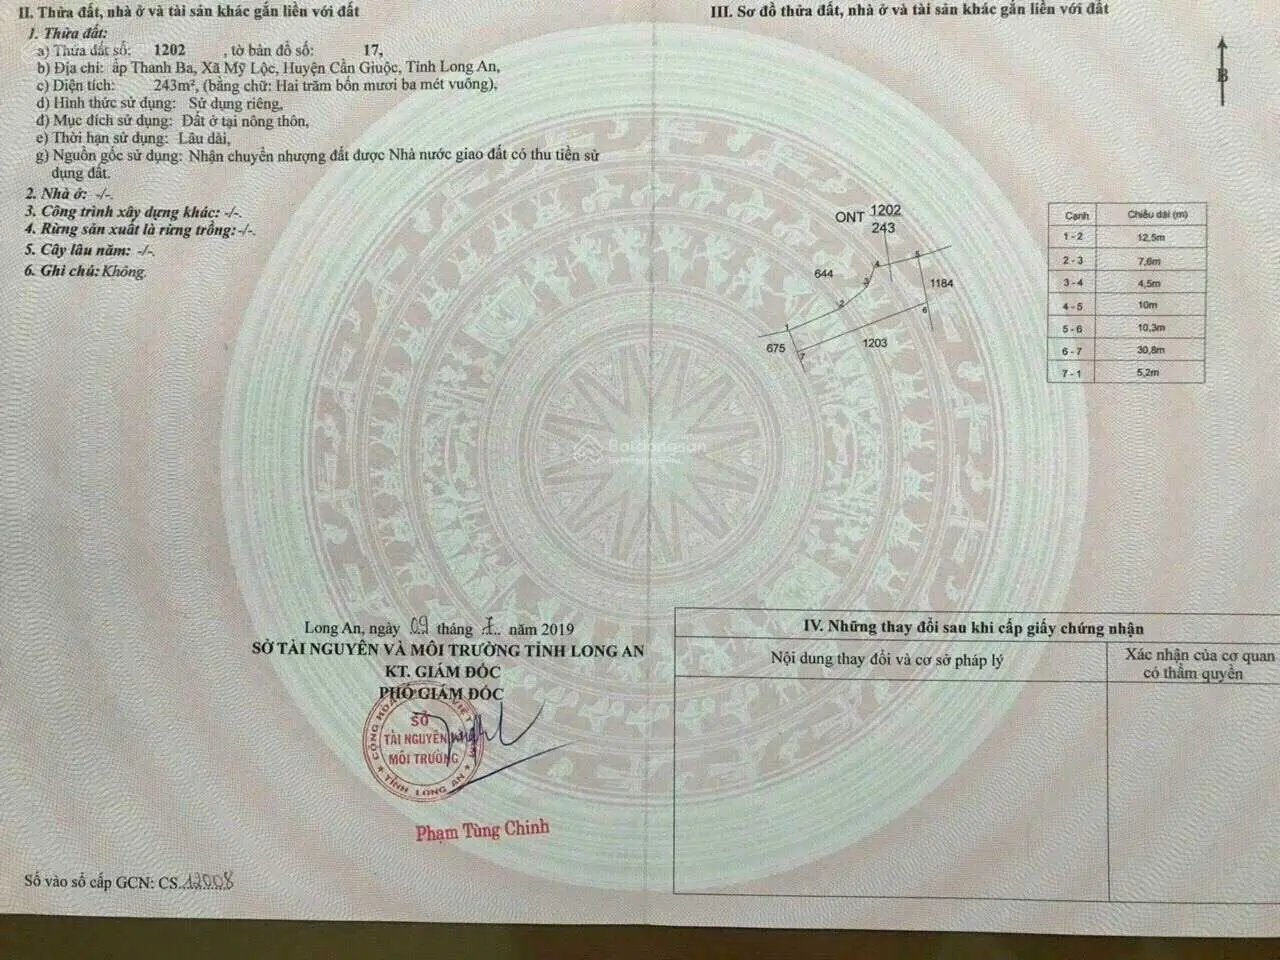 II. Thửa đất, nhà ở và tài sản khác gắn liền với đất
1. Thửa đất:
a) Thửa đất số: 1202 , tờ bản đồ số: 17,
b) Địa chỉ: ấp Thanh Ba, Xã Mỹ Lộc, Huyện Cần Giuộc, Tỉnh Long An,
c) Diện tích: 243m², (bằng chữ: Hai trăm bốn mươi ba mét vuông),
d) Hình thức sử dụng: Sử dụng riêng,
đ) Mục đích sử dụng: Đất ở tại nông thôn,
e) Thời hạn sử dụng: Lâu dài,
g) Nguồn gốc sử dụng: Nhận chuyển nhượng đất được Nhà nước giao đất có thu tiền sử
dụng đất.
2. Nhà ở: -/-.
3. Công trình xây dựng khác: -/-.
4. Rừng sản xuất là rừng trồng: -/-.
5. Cây lâu năm: -/-.
6. Ghi chú: Không.
Long An, ngày 09 tháng năm 2019
SỞ TÀI NGUYÊN VÀ MÔI TRƯỜNG TỈNH LONG AN
KT. GIÁM ĐỐC
PHÓ GIÁM ĐỐC
SỞ
TÀI NGUYÊN
MÔI TRƯỜNG
TỈNH LONG AN
Phạm Tùng Chinh
Số vào sổ cấp GCN: CS 12008
III. Sơ đồ thửa đất, nhà ở và tài sản khác gắn liền với đất
B
ONT 1202
243
644
4
5
3
1184
2
6
1
1203
675
7
Cạnh Chiều dài (m)
1 - 2 12,5m
2 - 3 7,6m
3 - 4 4,5m
4 - 5 10m
5 - 6 10,3m
6 - 7 30,8m
7 - 1 5,2m
Batdongsan
IV. Những thay đổi sau khi cấp giấy chứng nhận
Nội dung thay đổi và cơ sở pháp lý
Xác nhận của cơ quan
có thẩm quyền